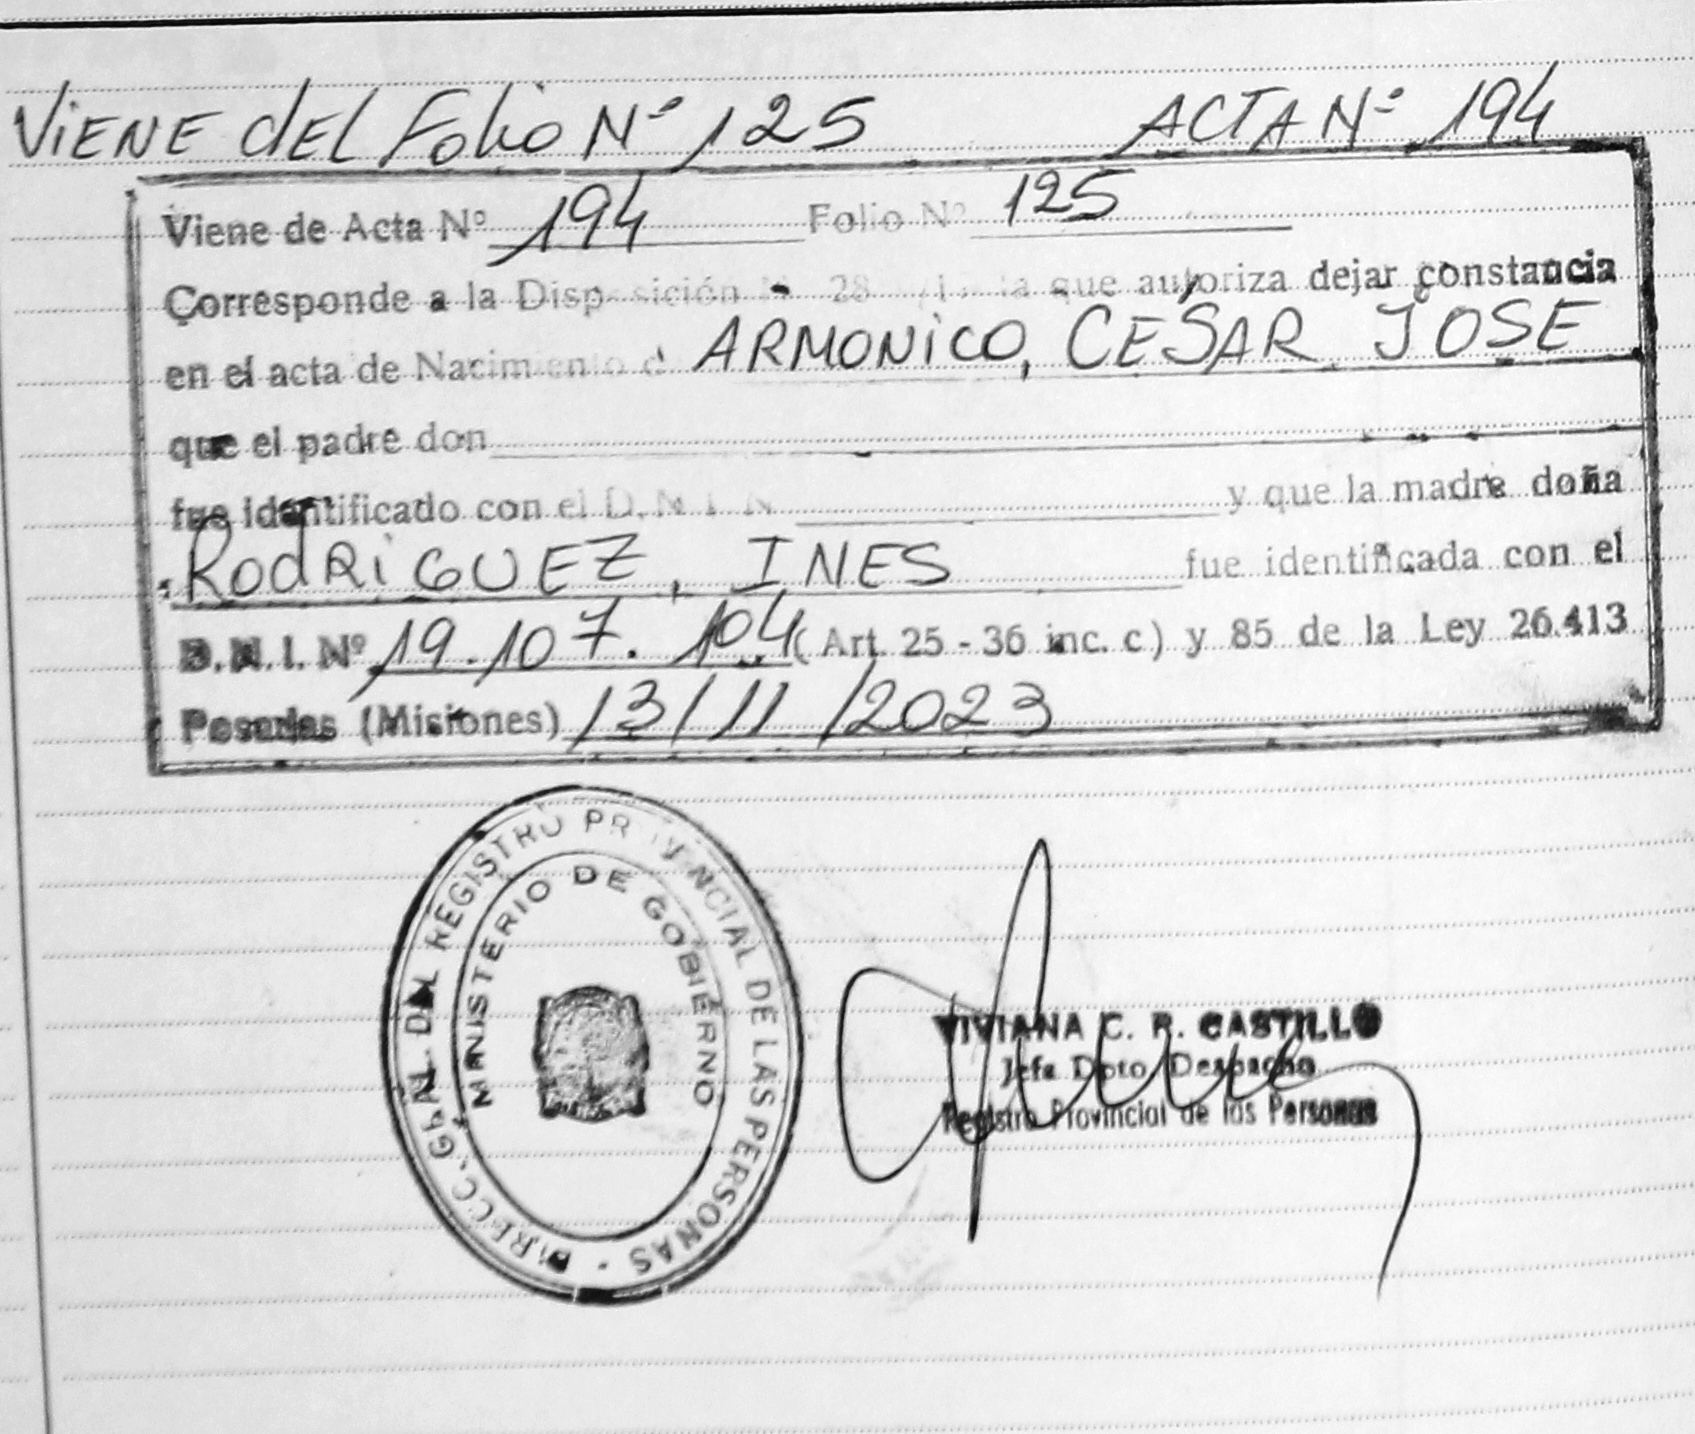 ViENE dEL Folio Nº 125 ACTA Nº 194
Viene de Acta Nº 194 Folio Nº 125
Corresponde a la Disposición Nº 28 la que autoriza dejar constancia
en el acta de Nacimiento d ARMONiCO, CESAR JOSE
que el padre don
fue identificado con el D.N.I. N y que la madre doña
RodRiGUEZ, INES fue identificada con el
D.N.I. Nº 19.107.104 (Art. 25 - 36 inc. c) y 85 de la Ley 26.413
Posadas (Misiones) 13/11/2023
DIRECC. GRAL. DEL REGISTRO PROVINCIAL DE LAS PERSONAS -
MINISTERIO DE GOBIERNO
VIVIANA C. R. CASTILLO
Jefa Dpto Despacho
Registro Provincial de las Personas